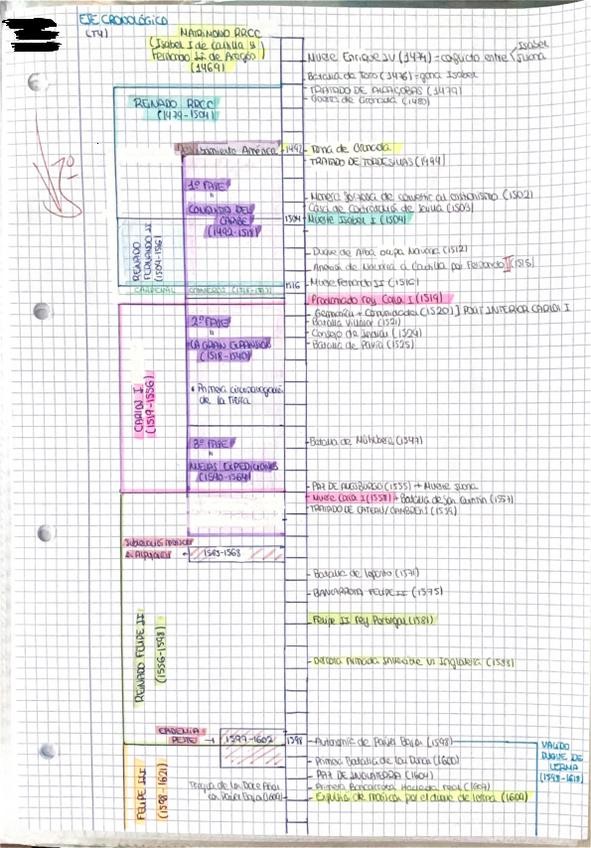 EJE CRONOLÓGICO
(T4)
MATRIMONIO RRCC
(Isabel I de Castilla y
Fernando II de Aragón)
(1469)
Muere Enrique IV (1474) → conflicto entre Isabel
Juana
Batalla de Toro (1476) → gana Isabel
TRATADO DE ALCAÇOBAS (1479)
Guerra de Granada (1480)
REINADO RRCC
(1479-1504)
1º
América
1492
Toma de Granada
TRATADO DE TORDESILLAS (1494)
1º FASE
"
CONQUISTA DEL
CARIBE
(1492-1518)
(1502)
Casa de Contratación de Sevilla (1503)
1504
Muere Isabel I (1504)
REINADO
FERNANDO II
(1504-1516)
Duque de Alba ocupa Navarra (1512)
Anexión de Navarra a Castilla por Fernando II (1515)
1516
Muere Fernando II (1516)
CARDENAL CISNEROS
Proclamado rey Carlos I (1519)
Germanías + Comunidades (1520) ] POLIT INTERIOR CARLOS I
Batalla Villalar (1521)
Consejo de Indias (1524)
Batalla de Pavía (1525)
2º FASE
"
LA GRAN EXPANSIÓN
(1518-1540)
• Primera circunnavegación
de la Tierra
CARLOS I
(1519-1556)
3º FASE
"
NUEVAS EXPEDICIONES
(1540-1564)
Batalla de Mühlberg (1547)
PAZ DE AUGSBURGO (1555) + Muere Juana
Muere Carlos I (1558) + Batalla de San Quintín (1557)
TRATADO DE CATEAU/CAMBRÉSI (1559)
Sublevación moriscos
1565-1568
Batalla de Lepanto (1571)
BANCARROTA FELIPE II (1575)
Felipe II rey Portugal (1581)
REINADO FELIPE II
(1556-1598)
Derrota Armada Invencible vs Inglaterra (1588)
EPIDEMIA
PESTE → 1597-1602
1598
Autonomía de Países Bajos (1598)
VALIDO
DUQUE DE
LERMA
(1598-1618)
Primera Batalla de las Dunas (1600)
PAZ DE INGLATERRA (1604)
Primera Bancarrota Hacienda real (1607)
Tregua de los Doce Años
en Países Bajos (1609)
Expulsión de moriscos por el duque de Lerma (1609)
FELIPE III
(1598-1621)